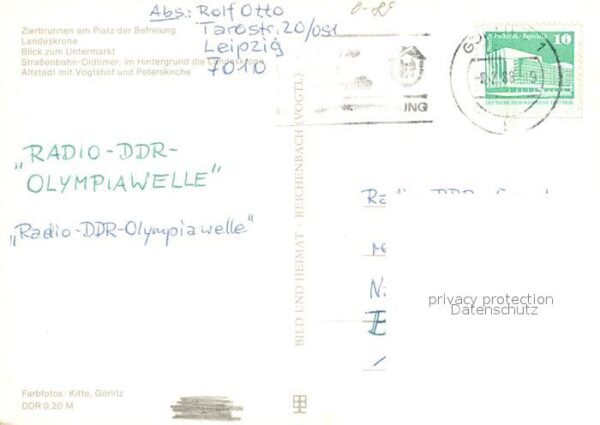 Zierbrunnen am Platz der Befreiung
Landeskrone
Blick zum Untermarkt
Straßenbahn-Oldtimer, im Hintergrund die Landeskrone
Altstadt mit Vogtshof und Peterskirche
Abs.: Rolf Otto
Tarostr. 20/051
Leipzig
7010
Palast der Republik
10
DEUTSCHE DEMOKRATISCHE REPUBLIK
„RADIO-DDR-
OLYMPIAWELLE"
„Radio-DDR-Olympiawelle"
BILD UND HEIMAT · REICHENBACH (VOGTL)
privacy protection
Datenschutz
Farbfotos: Kitte, Görlitz
DDR 0,20 M